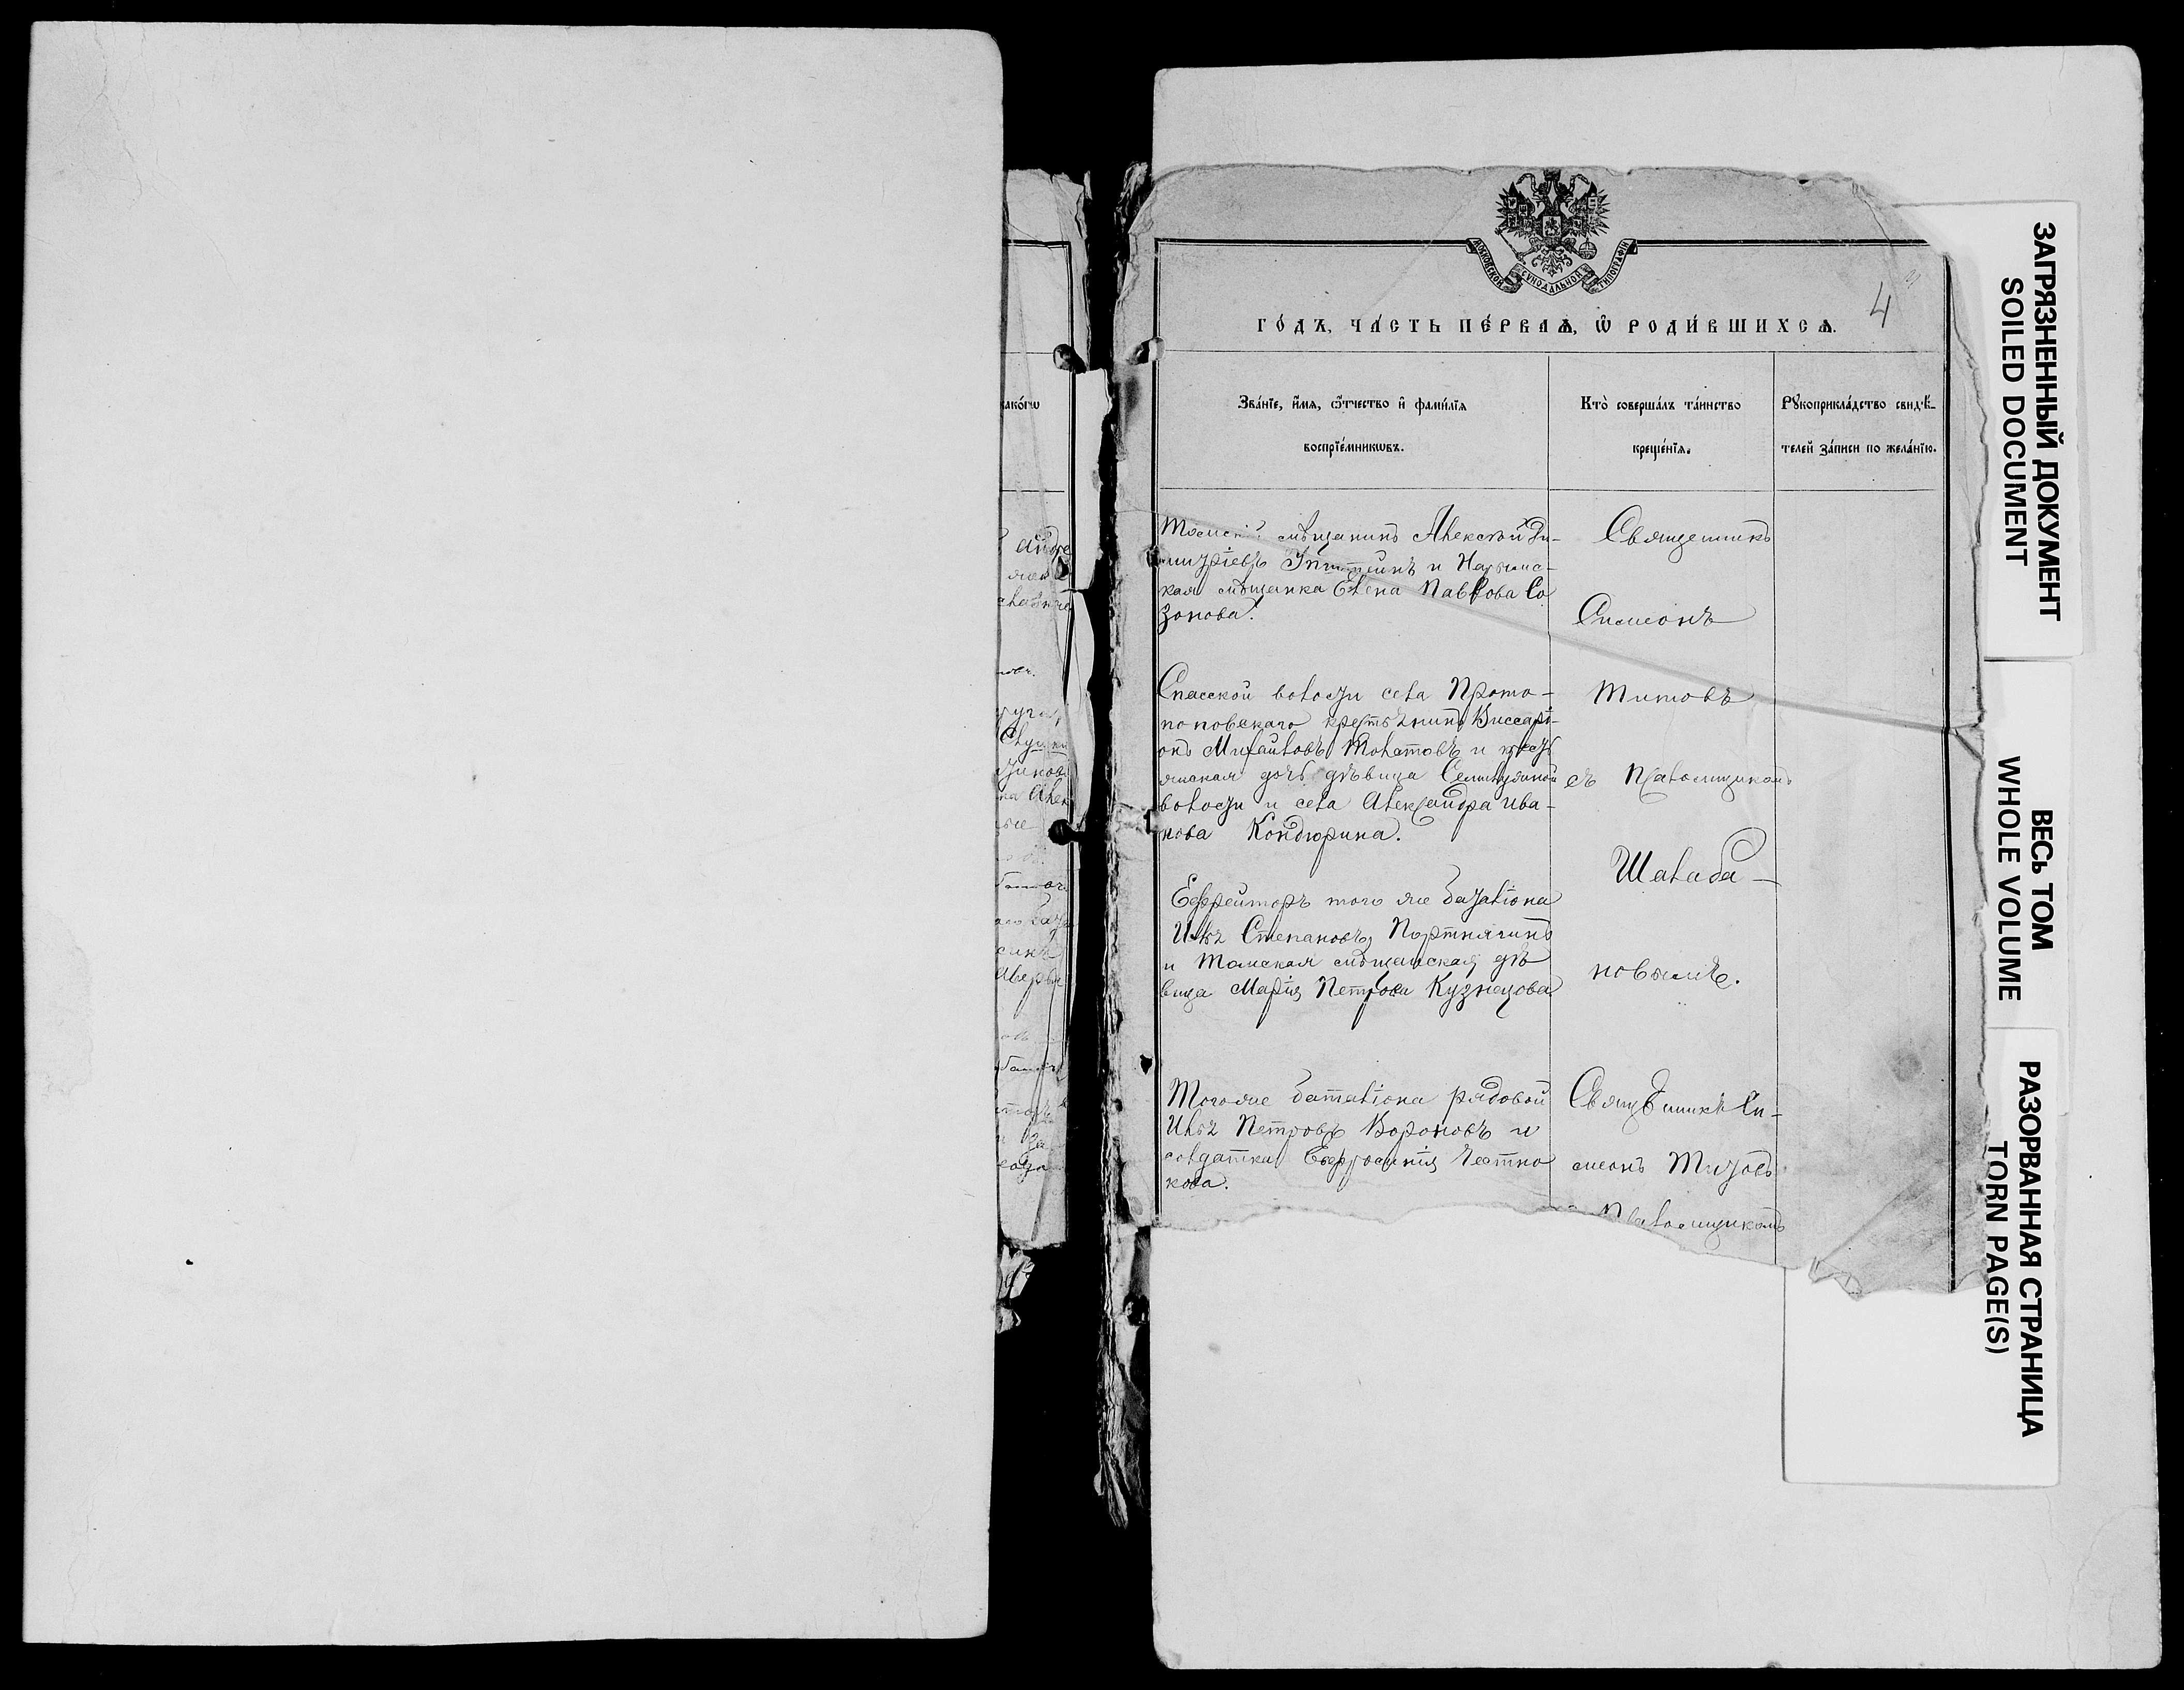 МОСКОВСКОЙ СѴНОДАЛЬНОЙ ТИПОГРАФІИ
4
ГО́ДЪ, ЧА́СТЬ ПЕ́РВАѦ, Ѡ҆ РОДИ́ВШИХСѦ.
Зва́нїе, и҆́мѧ, ѻ҆́тчество и҆ фами́лїѧ
воспрїе́мникѡвъ.
Кто̀ соверша́лъ та́инство
креще́нїѧ.
Рꙋкоприкла́дство свидѣ́-
телей за́писи по жела́нїю.
како́гѡ
Томскій мѣщанинъ Алексѣй Ди-
митріевъ и Нарымс-
кая мѣщанка Елена Павлова Со
зонова.
Священникъ
Симеонъ
Спасской волости села Прото-
поповскаго крестьянинъ Виссарі-
онъ Михайловъ Толатовъ и крестья
янская дочь дѣвица Семилужной
волости и села Александра Ива-
нова Кондюрина.
Титовъ
съ Псаломщикомъ
Шалаба-
новымъ.
Ефрейторъ того же баталіона
Илья Степановъ Портнягинъ
и Томская мѣщанская дѣ
вица Марія Петрова Кузнецова
Тогоже баталіона рядовой
Илья Петровъ Вороновъ и
солдатка Евфросинія
кова.
Священникъ Си-
меонъ Титовъ
Псаломщикомъ
ЗАГРЯЗНЕННЫЙ ДОКУМЕНТ
SOILED DOCUMENT
ВЕСЬ ТОМ
WHOLE VOLUME
РАЗОРВАННАЯ СТРАНИЦА
TORN PAGE(S)